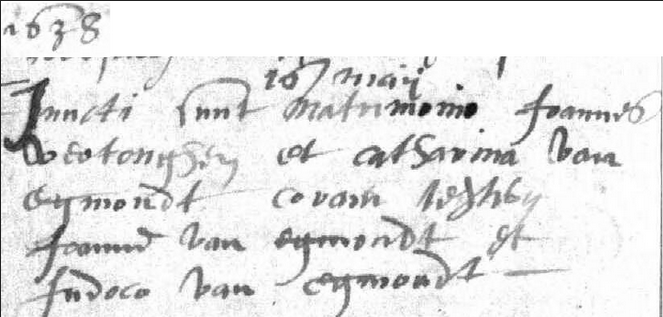 1638
16 maij
Juncti sunt matrimonio Joannes
Vertonghen et Catharina van
egmondt coram testibus
Joanne van egmondt et
Judoco van egmondt